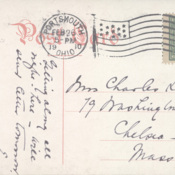 Post Card
PORTSMOUTH
FEB 26
PM
19
OHIO
Getting along all
right here - will
send letter tomorrow
Mrs Charles
79 Washington
Chelsea
Mass